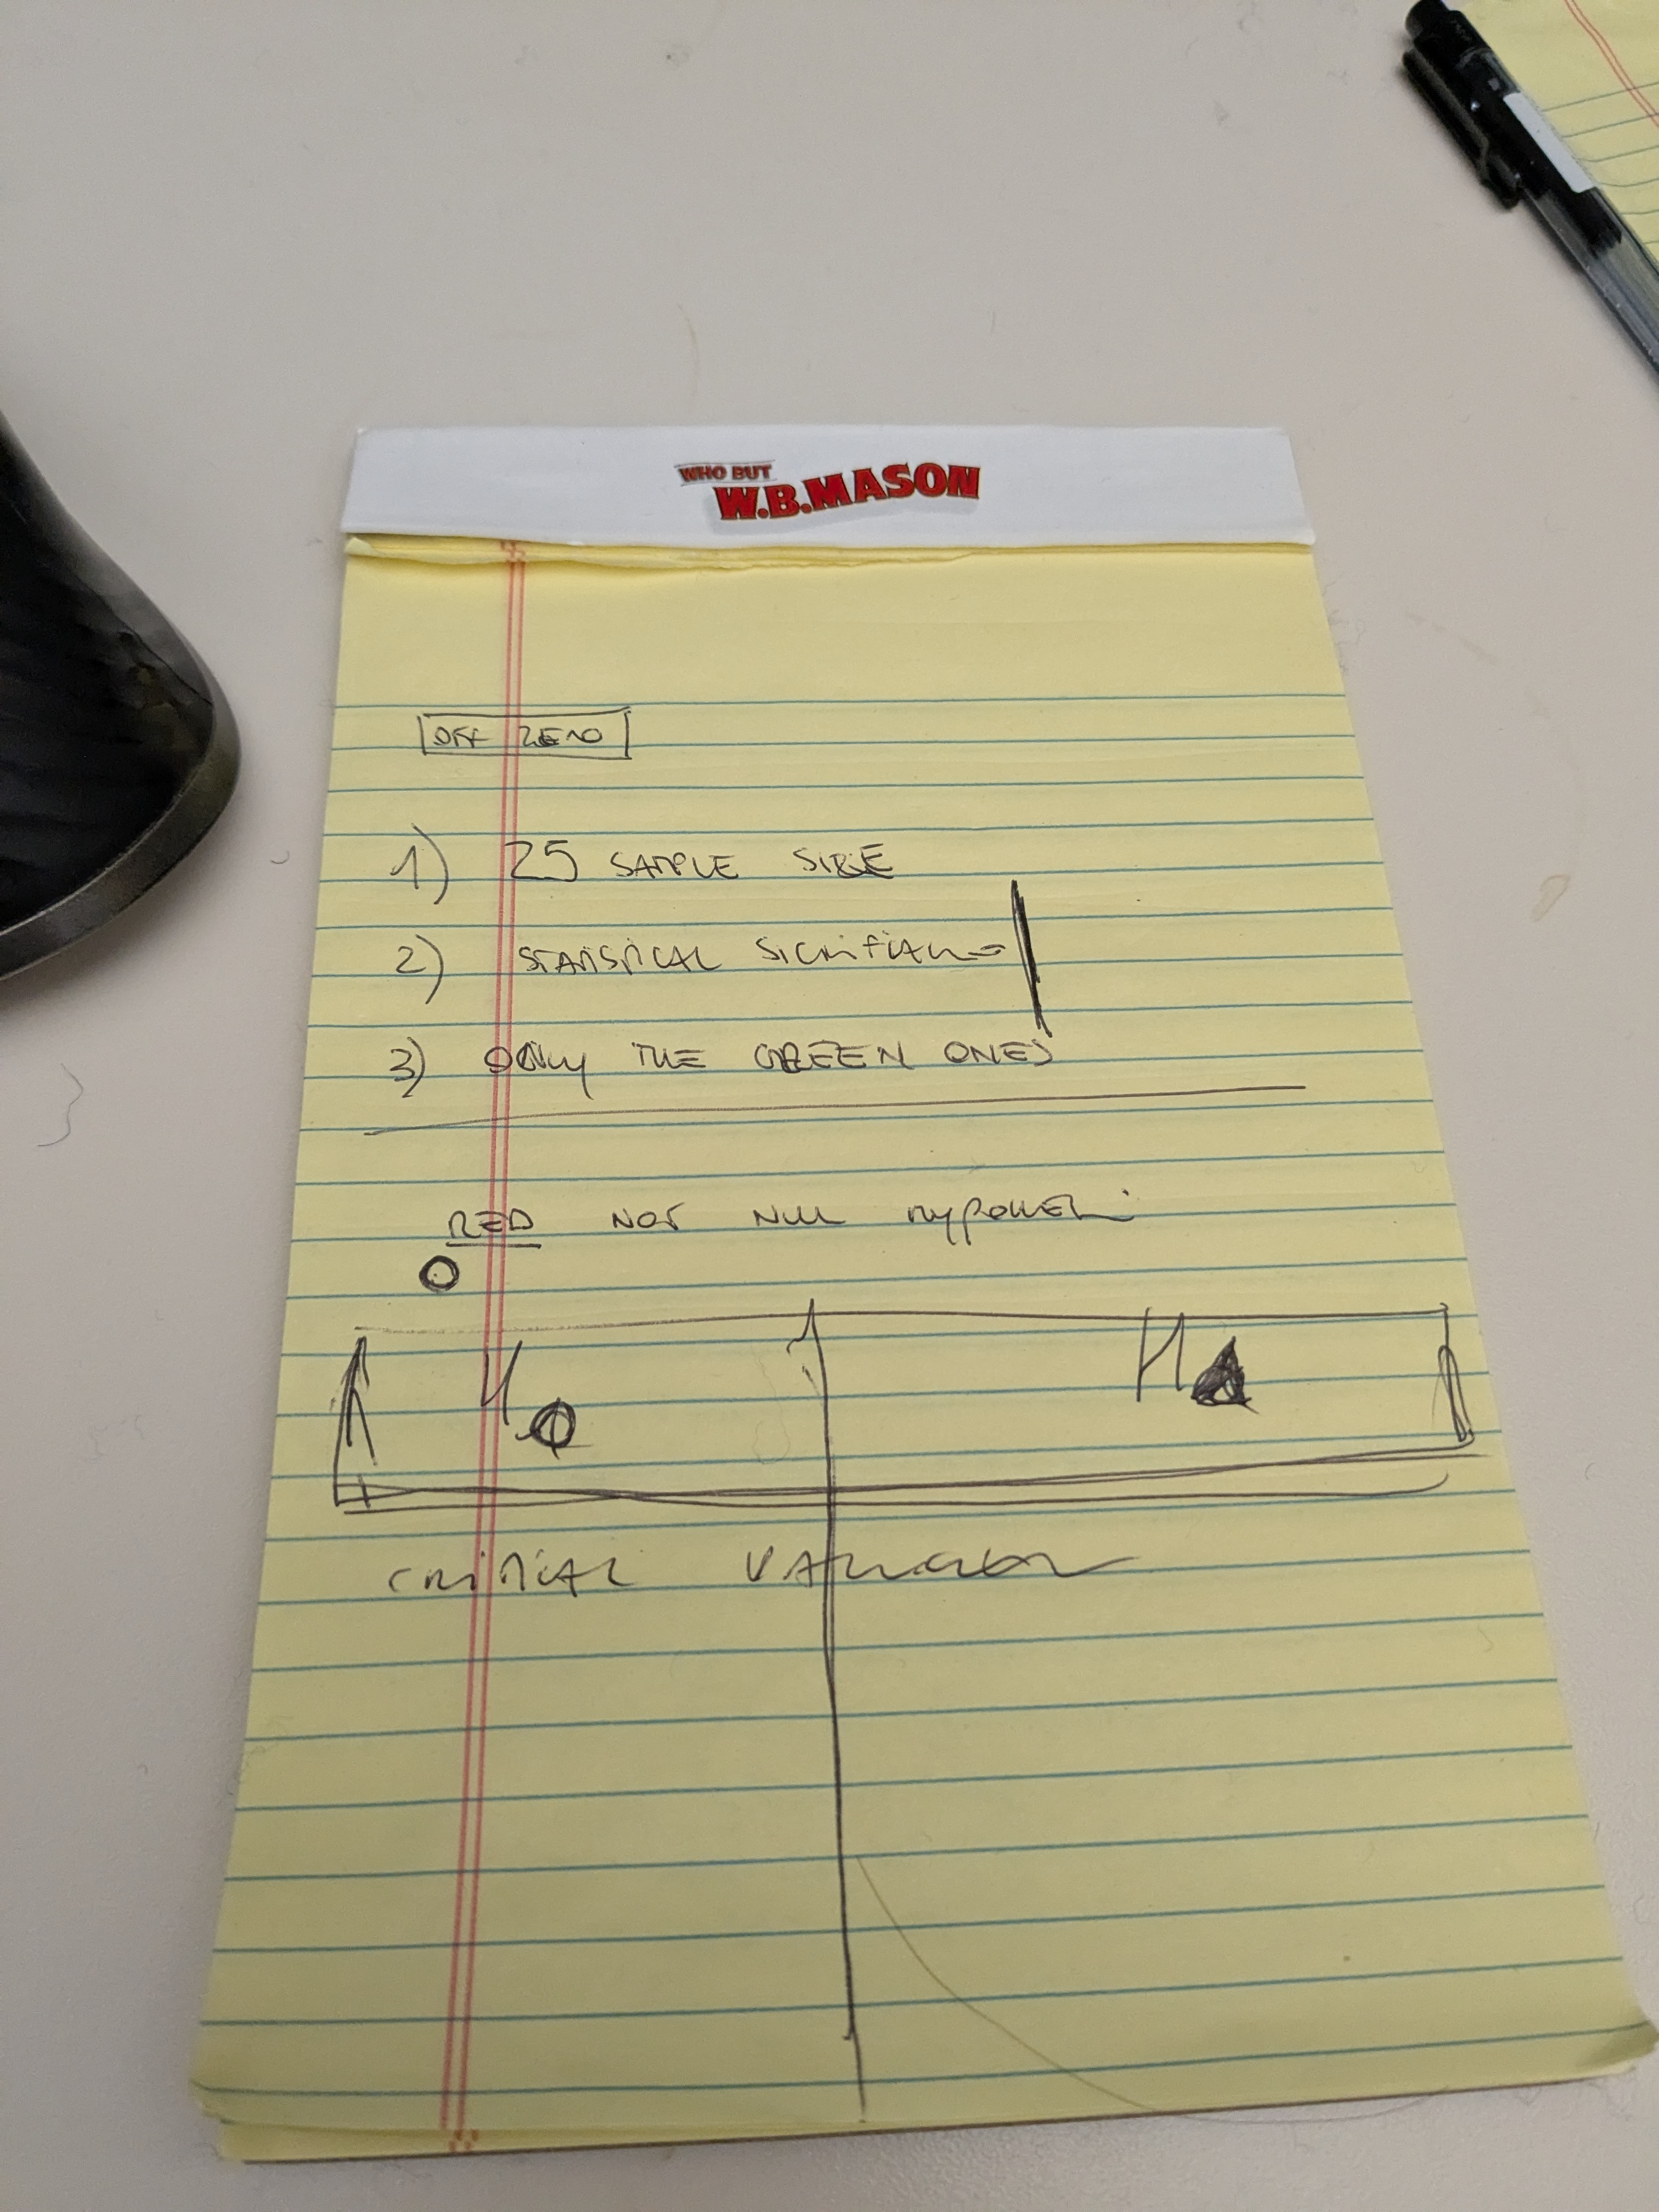 WHO BUT
W.B.MASON
OFF ZERO
1) 25 SAMPLE SIZE
2) STATISTICAL SIGNIFICANCE
3) ONLY THE GREEN ONES
RED NOT NULL
H0 Ha
CRITICAL